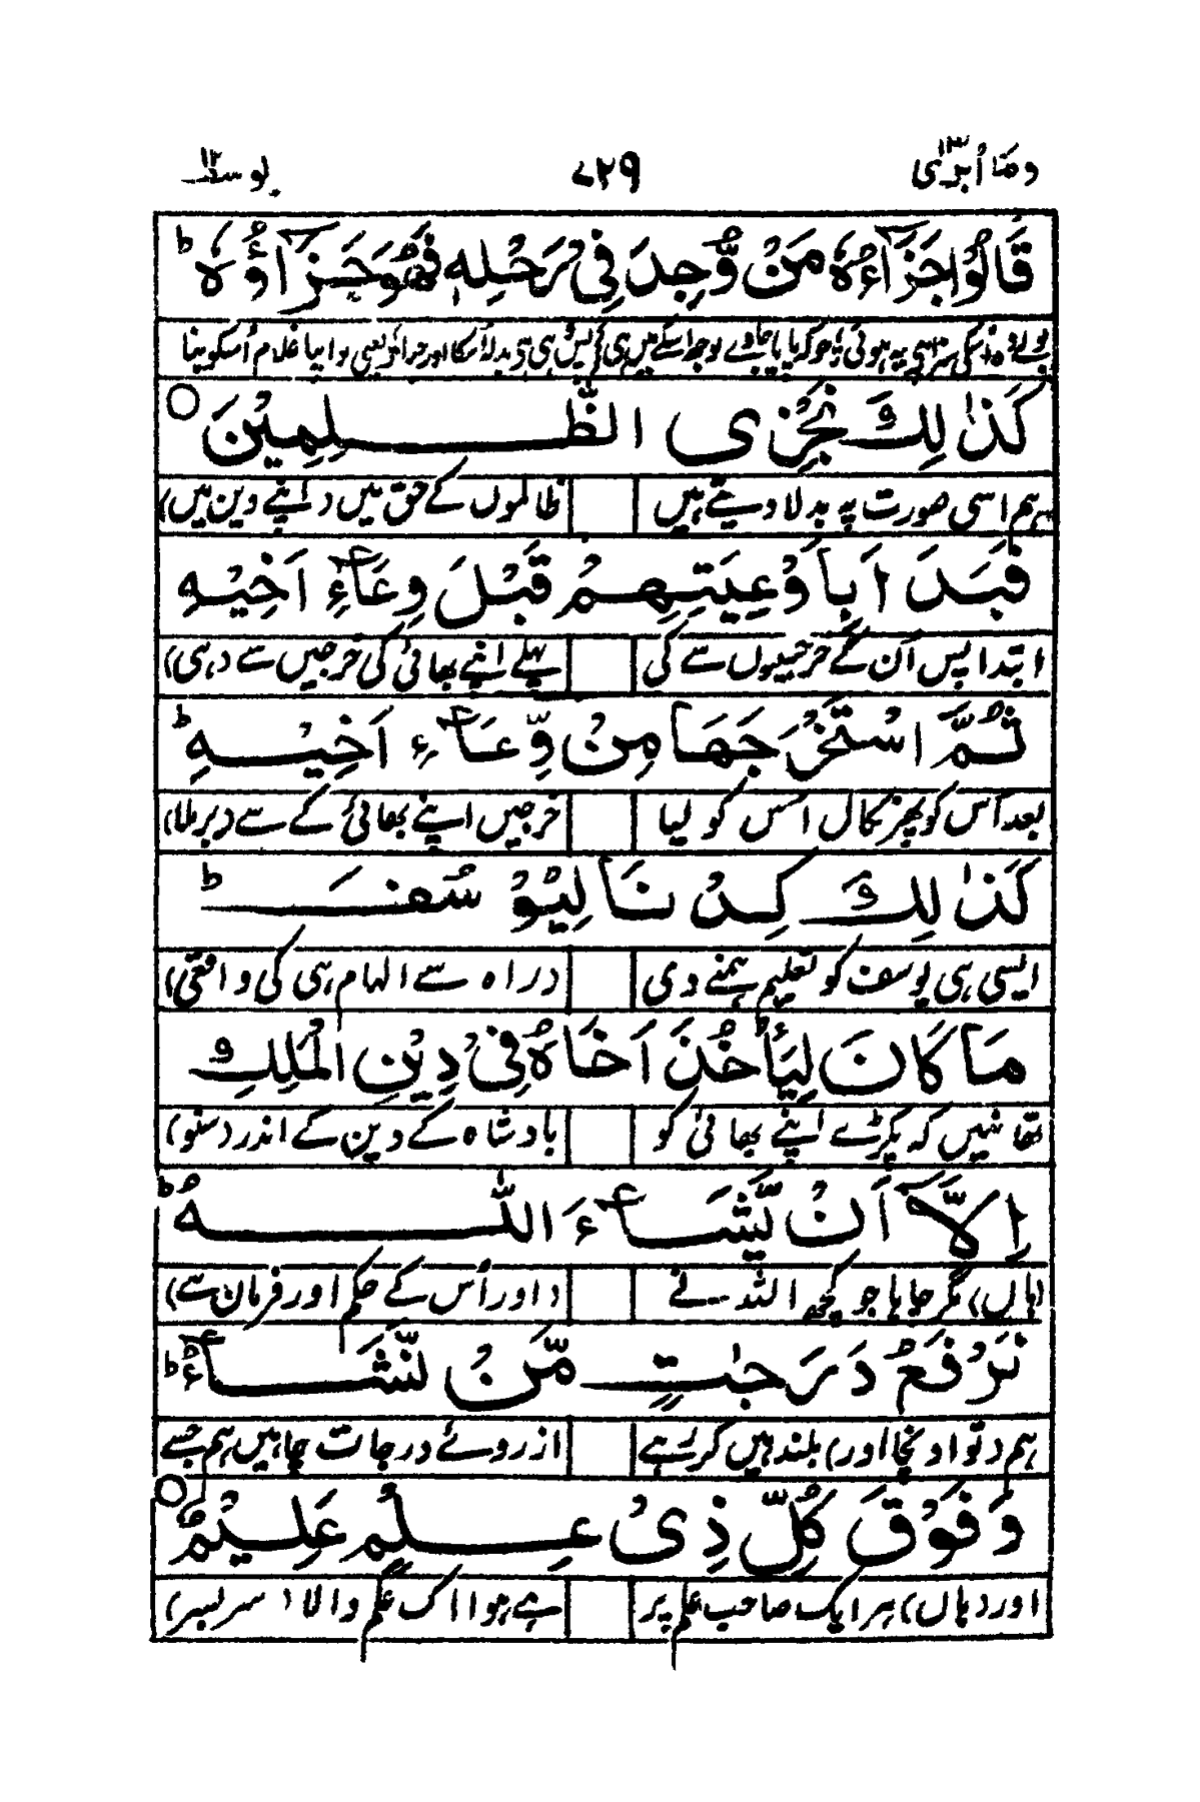 وما ابرئ ١٣ ٧٢٩ يوسف ١٢
قَالُوْا جَزَآءُهٗ مَنْ وُّجِدَ فِیْ رَحْلِهٖ فَهُوَ جَزَآؤُهٗ ؕ
بولے
كَذٰلِكَ نَجْزِی الظّٰلِمِیْنَ ○
ہم اسی صورت پہ بدلا دیتے ہیں ظالموں کے حق میں (اپنے دین میں)
فَبَدَاَ بِاَوْعِیَتِهِمْ قَبْلَ وِعَآءِ اَخِیْهِ
ابتدا پس اُن کے خرجیوں سے کی پہلے اپنے بھائی کی خرجیں سے (ہی)
ثُمَّ اسْتَخْرَجَهَا مِنْ وِّعَآءِ اَخِیْهِ ؕ
بعد اُس کو پھر نکال اُس کو لیا خرجیں اپنے بھائی کے سے (برملا)
كَذٰلِكَ كِدْنَا لِیُوْسُفَ ؕ
ایسی ہی یوسف کو تعلیم ہمنے دی (راہ سے الہام ہی کی واقعی)
مَا كَانَ لِیَاْخُذَ اَخَاهُ فِیْ دِیْنِ الْمَلِكِ
تھا نہیں کہ پکڑے اپنے بھائی کو بادشاہ کے دین کے اندر (سنو)
اِلَّاۤ اَنْ یَّشَآءَ اللّٰهُ ؕ
(ہاں) مگر چاہا جو کچھ اللہ نے (اور اُس کے حکم اور فرمان سے)
نَرْفَعُ دَرَجٰتٍ مَّنْ نَّشَآءُ ؕ
ہم (تو اونچا اور) بلند ہیں کرتے از روئے درجات چاہیں ہم جسے
وَ فَوْقَ كُلِّ ذِیْ عِلْمٍ عَلِیْمٌ ○
اور (ہاں) ہر ایک صاحب علم پر ہے ہوا اک علم والا (سربسر)